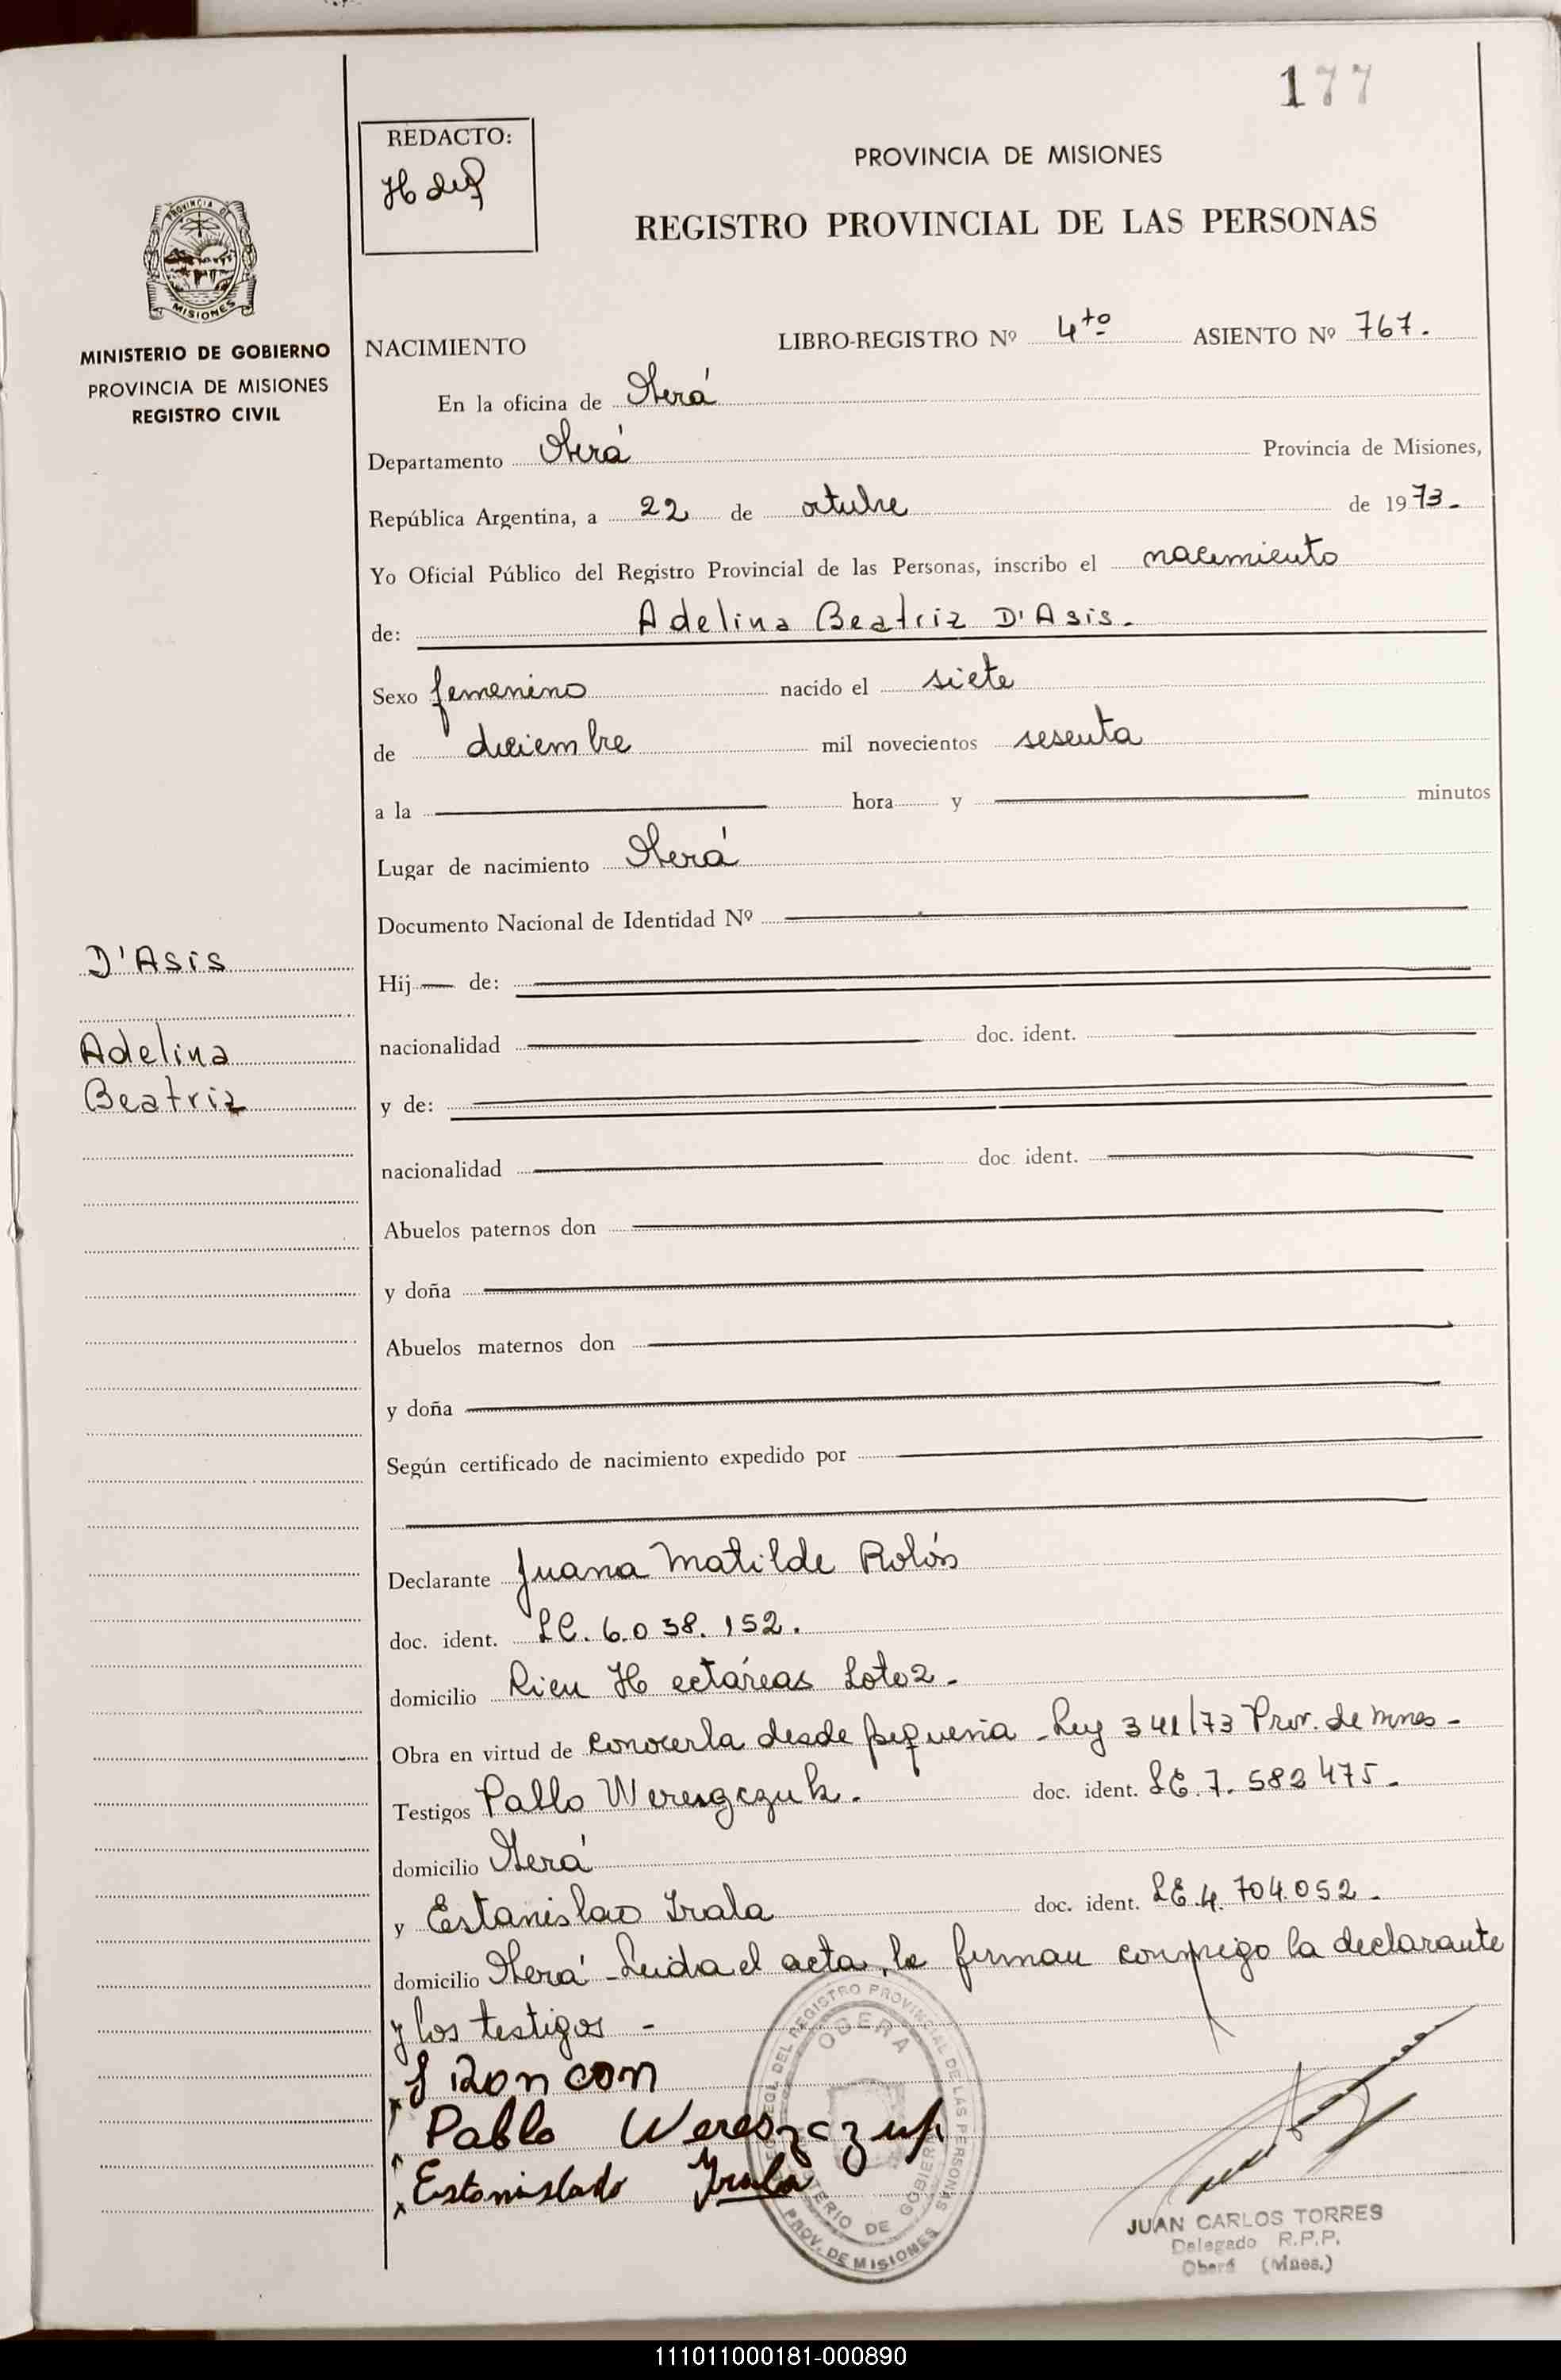 177
REDACTO:
PROVINCIA DE MISIONES
REGISTRO PROVINCIAL DE LAS PERSONAS
PROVINCIA DE
MISIONES
MINISTERIO DE GOBIERNO
PROVINCIA DE MISIONES
REGISTRO CIVIL
NACIMIENTO LIBRO-REGISTRO Nº 4to ASIENTO Nº 767.
En la oficina de Oberá
Departamento Oberá Provincia de Misiones,
República Argentina, a 22 de octubre de 1973.-
Yo Oficial Público del Registro Provincial de las Personas, inscribo el nacimiento
de: Adelina Beatriz D'Asis.
Sexo femenino nacido el siete
de diciembre mil novecientos sesenta
a la hora y minutos
Lugar de nacimiento Oberá
Documento Nacional de Identidad Nº
D'Asis
Adelina
Beatriz
Hij de:
nacionalidad doc. ident.
y de:
nacionalidad doc. ident.
Abuelos paternos don
y doña
Abuelos maternos don
y doña
Según certificado de nacimiento expedido por
Declarante Juana Matilde Rolón
doc. ident. LC. 6.038.152.
domicilio Cien Hectáreas Lote 2.-
Obra en virtud de conocerla desde pequeña - Ley 341/73 Prov. de Mnes-
Testigos Pablo Wereszczuk. doc. ident. LE 7. 582 475.-
domicilio Oberá
y Estanislao Irala doc. ident. LE 4. 704.052.-
domicilio Oberá - Leída el acta, la firman conmigo la declarante
y los testigos -
Pablo Wereszczuk
Estanislado Irala
REGISTRO PROVINCIAL DE LAS PERSONAS
OBERA
MINISTERIO DE GOBIERNO
PROV. DE MISIONES
JUAN CARLOS TORRES
Delegado R.P.P.
Oberá (Mnes.)
111011000181-000890